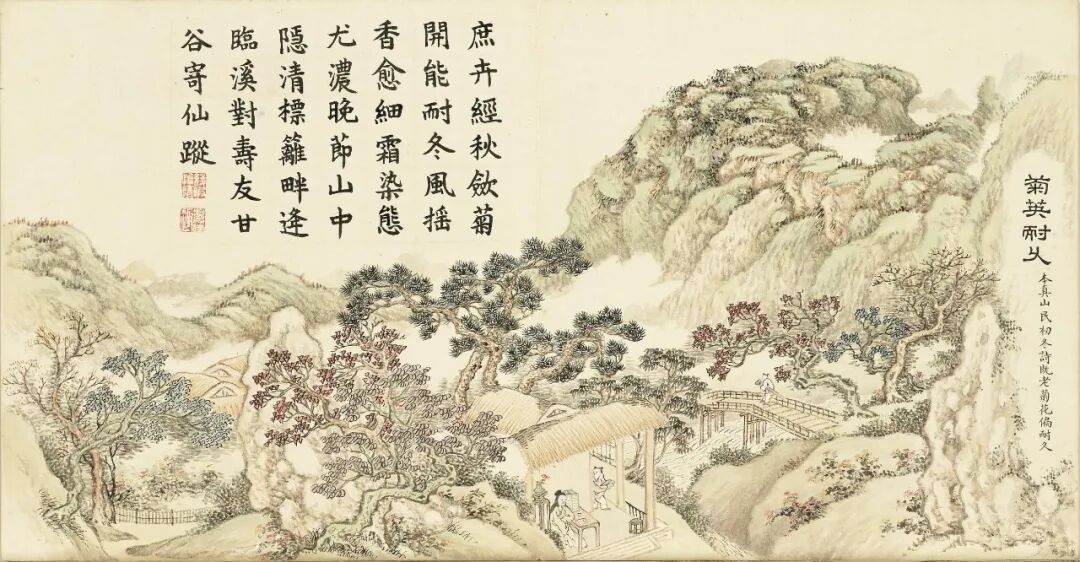 菊英耐久
本真山民初冬詩既老菊花偏耐久
庶卉經秋歛菊
開能耐冬風揺
香愈細霜染態
尤濃晚節山中
隱清標籬畔逢
臨溪對壽友甘
谷寄仙蹤